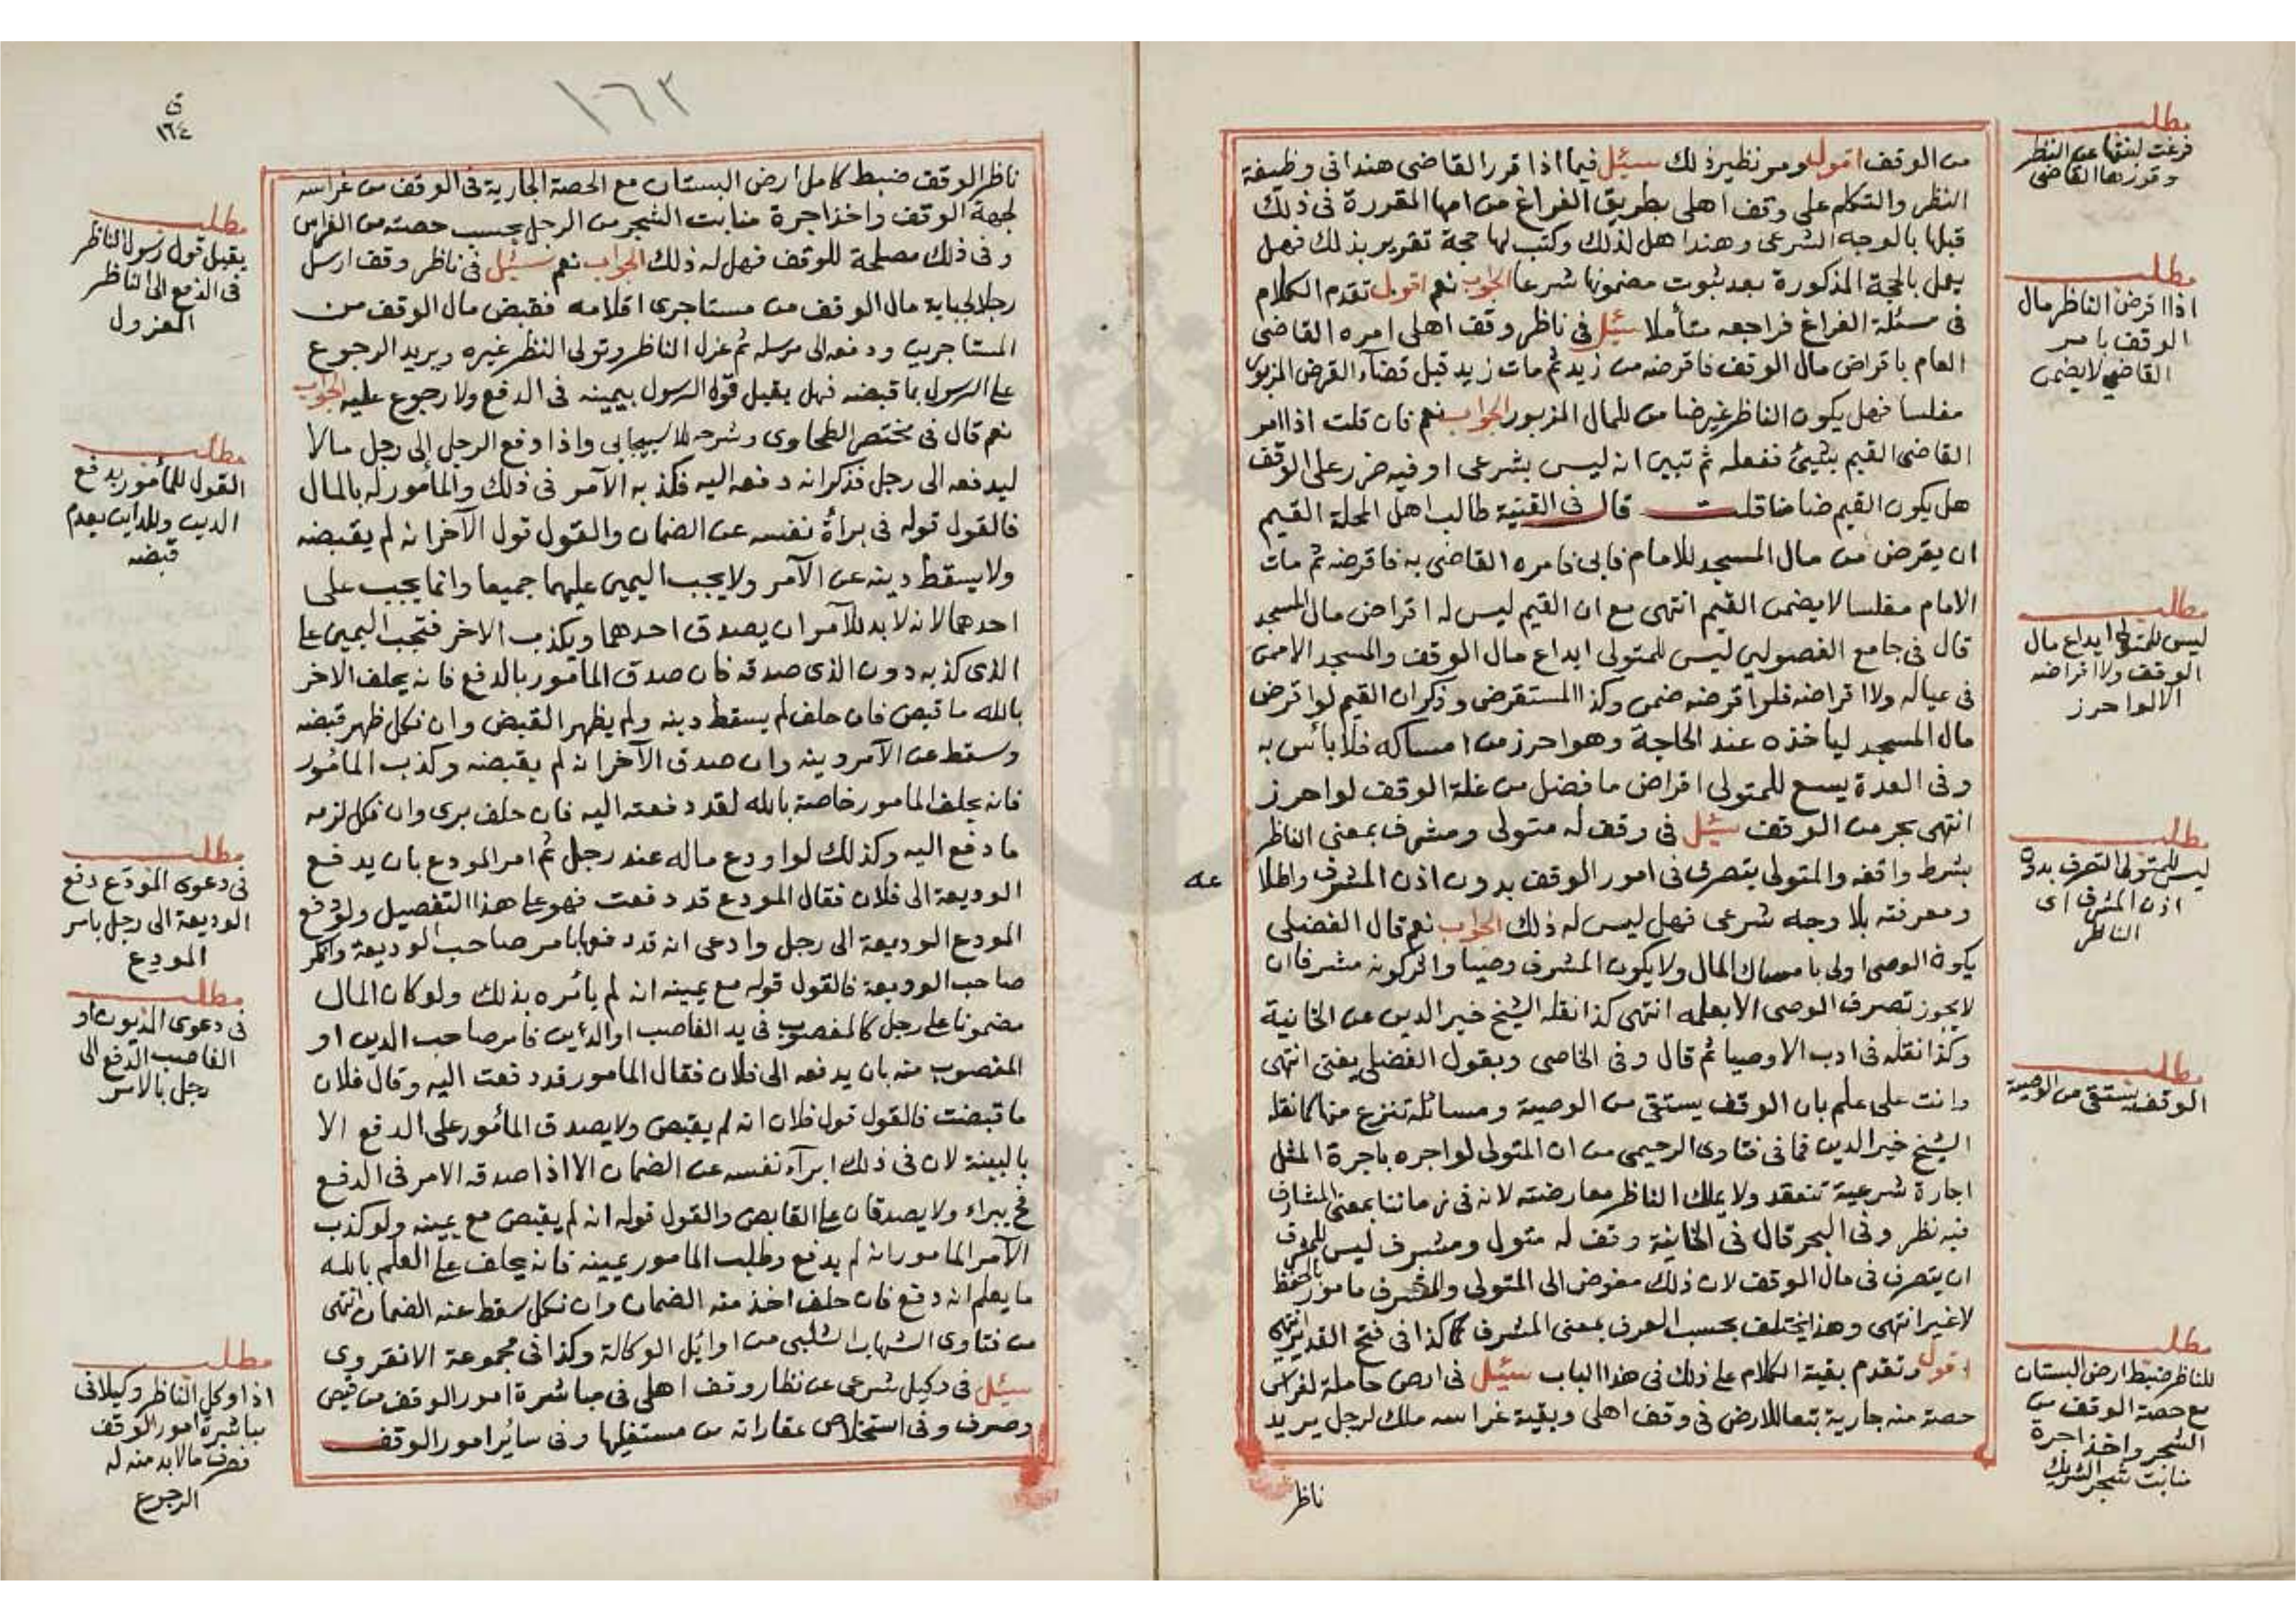 مطلب
فرغت لبنتها عن النظر
وقررها القاضي
من الوقف اقول ومر نظير ذلك سئل فيما اذا قرر القاضي هندا في وظيفة
النظر والتكلم على وقف اهلي بطريق الفراغ من امها المقررة في ذلك
قبلها بالوجه الشرعي وهندا هل لذلك وكتب لها حجة تقرير بذلك فهل
يعمل بالحجة المذكورة بعد ثبوت مضمونها شرعا الجواب نعم اقول تقدم الكلام
في مسئلة الفراغ فراجعه متأملا سئل في ناظر وقف اهلي امره القاضي
العام باقراض مال الوقف فاقرضه من زيد ثم مات زيد قبل قضاء القرض المزبور
مفلسا فهل يكون الناظر غير ضامن للمال المزبور الجواب نعم فان قلت اذا امر
القاضي القيم بشيئ ففعله ثم تبين انه ليس بشرعي او فيه ضرر على الوقف
هل يكون القيم ضامنا قلت قال في القنية طالب اهل المحلة القيم
ان يقرض من مال المسجد للامام فابى فامره القاضي به فاقرضه ثم مات
الامام مفلسا لا يضمن القيم انتهى مع ان القيم ليس له اقراض مال المسجد
قال في جامع الفصولين ليس للمتولي ايداع مال الوقف والمسجد الا ممن
في عياله ولا اقراضه فلو اقرضه ضمن وكذا المستقرض وذكر ان القيم لو اقرض
مال المسجد ليأخذه عند الحاجة وهو احرز من امساكه فلا بأس به
وفي العدة يسع للمتولي اقراض ما فضل من غلة الوقف لو احرز
انتهى بحر من الوقف سئل في وقف له متولي ومشرف بمعنى الناظر
بشرط واقفه والمتولي يتصرف في امور الوقف بدون اذن المشرف واطلا
عه
ومعرفته بلا وجه شرعي فهل ليس له ذلك الجواب نعم قال الفضلي
يكون الوصي اولى بامساك المال ولا يكون المشرف وصيا واثر كونه مشرفا ان
لا يجوز تصرف الوصي الا بعلمه انتهى كذا نقله الشيخ خير الدين عن الخانية
وكذا نقله في ادب الاوصيا ثم قال وفي الخاصي وبقول الفضلي يفتى انتهى
وانت على علم بان الوقف يستقى من الوصية ومسائله تنزع منها كما نقله
الشيخ خير الدين فما في فتاوى الرحيمي من ان المتولي لو اجره باجرة المثل
اجارة شرعية تنعقد ولا يملك الناظر معارضته لانه في زماننا بمعنى المشارف
فيه نظر وفي البحر قال في الخانية وقف له متول ومشرف ليس للمشرف
ان يتصرف في مال الوقف لان ذلك مفوض الى المتولي والمشرف مامور بالحفظ
لا غير انتهى وهذا يختلف بحسب العرف بمعنى المشرف كما كذا في فتح القدير انتهى
اقول وتقدم بقية الكلام على ذلك في هذا الباب سئل في ارض حاملة لغراس
حصة منه جارية تبعا للارض في وقف اهلي وبقية غراسه ملك لرجل يريد
ناظر
مطلب
اذا اقرض الناظر مال
الوقف بامر
القاضي لا يضمن
مطلب
ليس للمتولي ايداع مال
الوقف ولا اقراضه
الا لو احرز
مطلب
ليس للمتولي التصرف بدون
اذن المشرف اي
الناظر
مطلب
الوقف يستقى من الوصية
مطلب
للناظر ضبط ارض البستان
مع حصة الوقف من
الشجر واخذ اجرة
منابت شجر الشريك
١٦٣
ق
١٦٤
ناظر الوقف ضبط كامل ارض البستان مع الحصة الجارية في الوقف من غراسه
لجهة الوقف واخذ اجرة منابت الشجر من الرجل بحسب حصته من الغراس
وفي ذلك مصلحة للوقف فهل له ذلك الجواب نعم سئل في ناظر وقف ارسل
رجلا لجباية مال الوقف من مستاجري اقلامه فقبض مال الوقف من
المستاجرين ودفعه الى مرسله ثم عزل الناظر وتولى النظر غيره ويريد الرجوع
على الرسول بما قبضه فهل يقبل قول الرسول بيمينه في الدفع ولا رجوع عليه الجواب
نعم قال في مختصر الطحاوي وشرحه للاسبيجابي واذا دفع الرجل إلى رجل مالا
ليدفعه الى رجل فذكر انه دفعه اليه فكذبه الآمر في ذلك والمأمور له بالمال
فالقول قوله في برأة نفسه عن الضمان والقول قول الآخر انه لم يقبضه
ولا يسقط دينه عن الآمر ولا يجب اليمين عليهما جميعا وانما يجب على
احدهما لانه لا بد للآمر ان يصدق احدهما ويكذب الاخر فتجب اليمين على
الذي كذبه دون الذي صدقه فان صدق المأمور بالدفع فانه يحلف الاخر
بالله ما قبض فان حلف لم يسقط دينه ولم يظهر القبض وان نكل ظهر قبضه
وسقط عن الآمر دينه وان صدق الآخر انه لم يقبضه وكذب المأمور
فانه يحلف المامور خاصة بالله لقد دفعته اليه فان حلف برئ وان نكل لزمه
ما دفع اليه وكذلك لو اودع ماله عند رجل ثم امر المودع بان يدفع
الوديعة الى فلان فقال المودع قد دفعت فهو على هذا التفصيل ولو دفع
المودع الوديعة الى رجل وادعى انه قد دفعها بامر صاحب الوديعة وانكر
صاحب الوديعة فالقول قوله مع يمينه انه لم يأمره بذلك ولو كان المال
مضمونا على رجل كالمغصوب في يد الغاصب او الدين فامر صاحب الدين او
المغصوب منه بان يدفعه الى فلان فقال المامور قد دفعت اليه وقال فلان
ما قبضت فالقول قول فلان انه لم يقبض ولا يصدق المأمور على الدفع الا
بالبينة لان في ذلك ابرآء نفسه عن الضمان الا اذا صدقه الامر في الدفع
فح يبراء ولا يصدقان على القابض والقول قوله انه لم يقبض مع يمينه ولو كذب
الآمر المامور انه لم يدفع وطلب المامور يمينه فانه يحلف على العلم بالله
ما يعلم انه دفع فان حلف اخذ منه الضمان وان نكل سقط عنه الضمان انتهى
من فتاوى الشهاب الشلبي من اوايل الوكالة وكذا في مجموعة الانقروي
سئل في وكيل شرعي عن نظار وقف اهلي في مباشرة امور الوقف من قبض
وصرف وفي استخلاص عقاراته من مستغليها وفي سائر امور الوقف
مطلب
يقبل قول رسول الناظر
في الدفع الى الناظر
المعزول
مطلب
القول للمأمور بدفع
الدين وللداين بعدم
قبضه
مطلب
في دعوى المودع دفع
الوديعة الى رجل بامر
المودع
مطلب
في دعوى المديون او
الغاصب الدفع الى
رجل بالامر
مطلب
اذا وكل الناظر وكيلا في
مباشرة امور الوقف
فصرف ما لا بد منه له
الرجوع